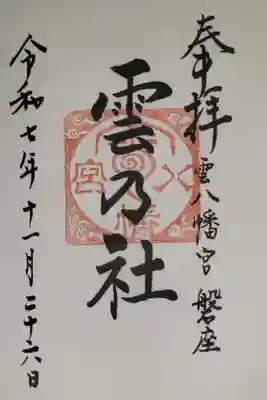 奉拝
雲八幡宮 磐座
雲乃社
令和七年十一月二十六日